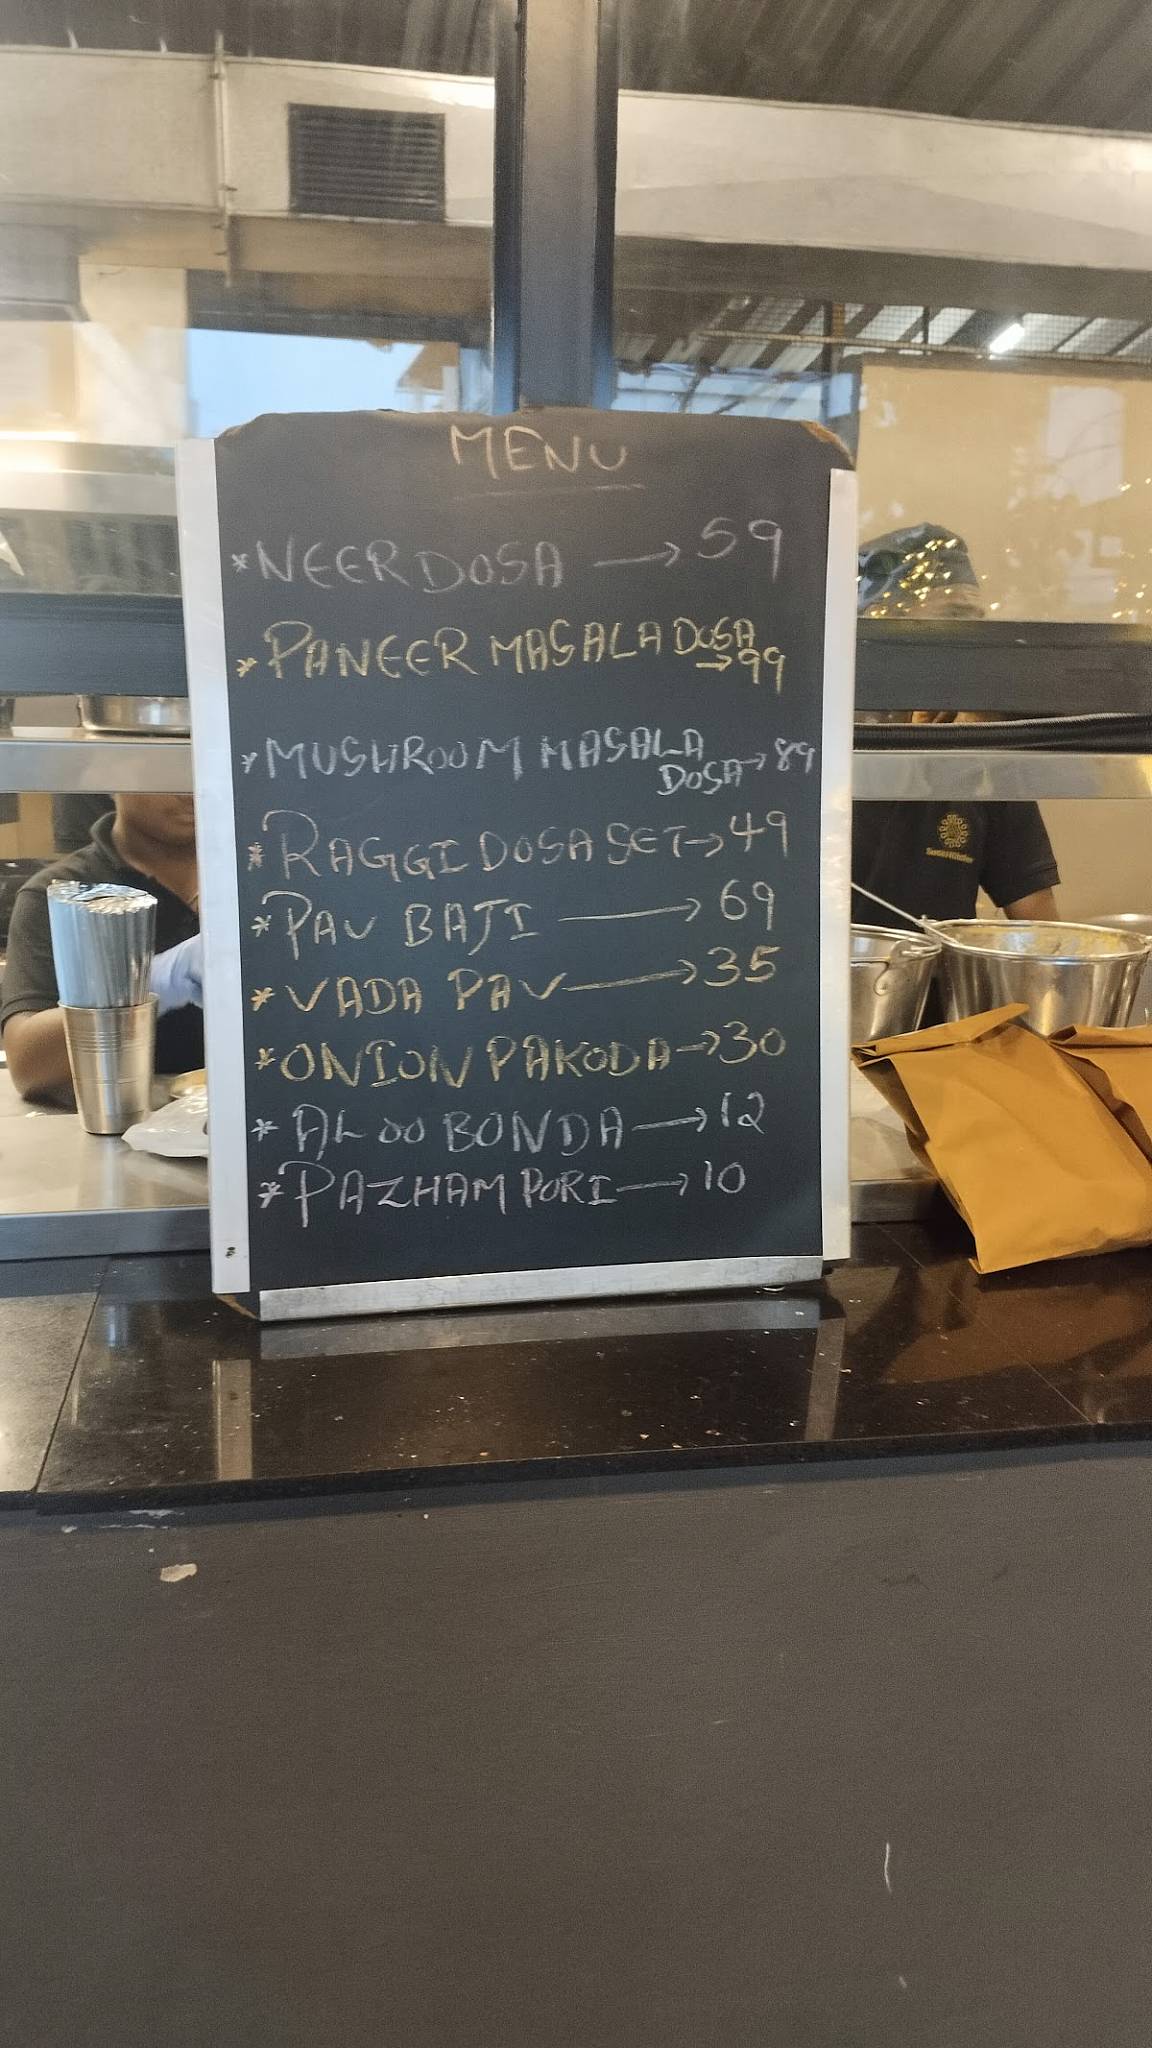 MENU
* NEER DOSA → 59
* PANEER MASALA DOSA
→ 99
* MUSHROOM MASALA
DOSA → 89
* RAGGI DOSA SET → 49
* PAV BAJI → 69
* VADA PAV → 35
* ONION PAKODA → 30
* ALOO BONDA → 12
* PAZHAM PORI → 10